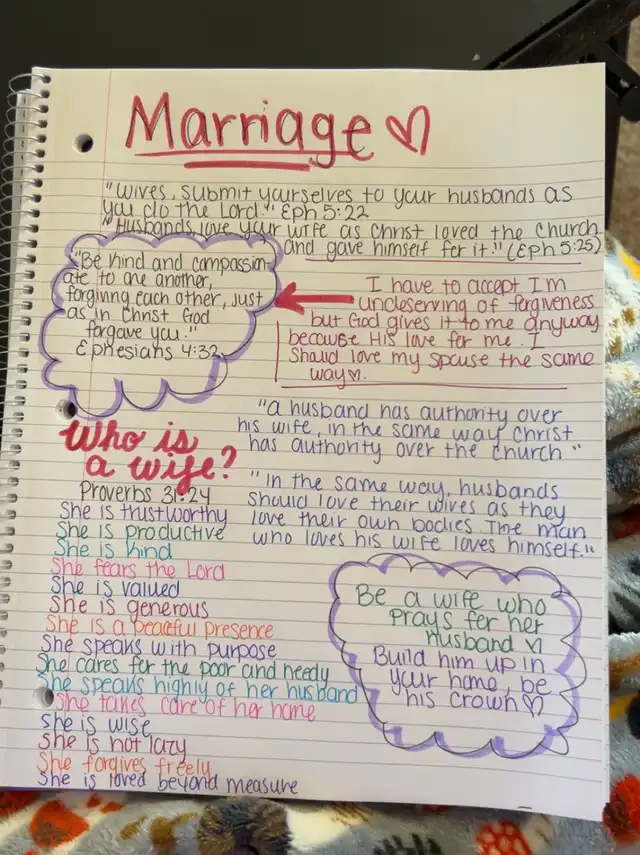 Marriage
"Wives, submit yourselves to your husbands as
you do the Lord." Eph 5:22
"Husbands, love your wife as Christ loved the church
and gave himself for it." (Eph 5:25)
"Be kind and compassion-
ate to one another,
forgiving each other, just
as in Christ God
forgave you."
Ephesians 4:32
I have to accept I'm
undeserving of forgiveness
but God gives it to me anyway
because His love for me. I
should love my spouse the same
way
"a husband has authority over
his wife, in the same way Christ
has authority over the church"
"In the same way, husbands
should love their wives as they
love their own bodies. The man
who loves his wife loves himself."
Who is
a wife?
Proverbs 31:24
She is trustworthy
She is productive
She is kind
She fears the Lord
She is valued
She is generous
She is a peaceful presence
She speaks with purpose
She cares for the poor and needy
She speaks highly of her husband
She takes care of her home
She is wise
She is not lazy
She forgives freely
She is loved beyond measure
Be a wife who
prays for her
husband
Build him up in
your home, be
his crown